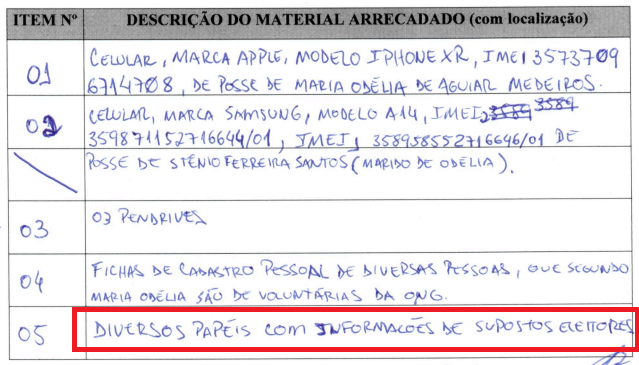 ITEM Nº DESCRIÇÃO DO MATERIAL ARRECADADO (com localização)
01 CELULAR, MARCA APPLE, MODELO IPHONE XR, IMEI 3573709
6714708, DE POSSE DE MARIA ODÉLIA DE AGUIAR MEDEIROS.
02 CELULAR, MARCA SAMSUNG, MODELO A14, IMEI2
359871152716644/01, IMEI1 358958552716646/01 DE
POSSE DE STÊNIO FERREIRA SANTOS (MARIDO DE ODÉLIA).
03 03 PENDRIVES
04 FICHAS DE CADASTRO PESSOAL DE DIVERSAS PESSOAS, QUE SEGUNDO
MARIA ODÉLIA SÃO DE VOLUNTÁRIAS DA ONG.
05 DIVERSOS PAPÉIS COM INFORMAÇÕES DE SUPOSTOS ELEITORES